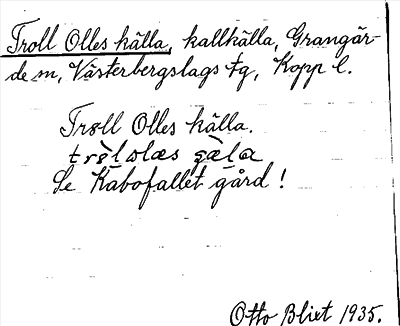 Troll Olles källa, kallkälla, Grangär-
de sn, Västerbergslags tg, Kopp l.
Troll Olles källa.
Se Kabofallet gård!
Otto Blixt 1935.